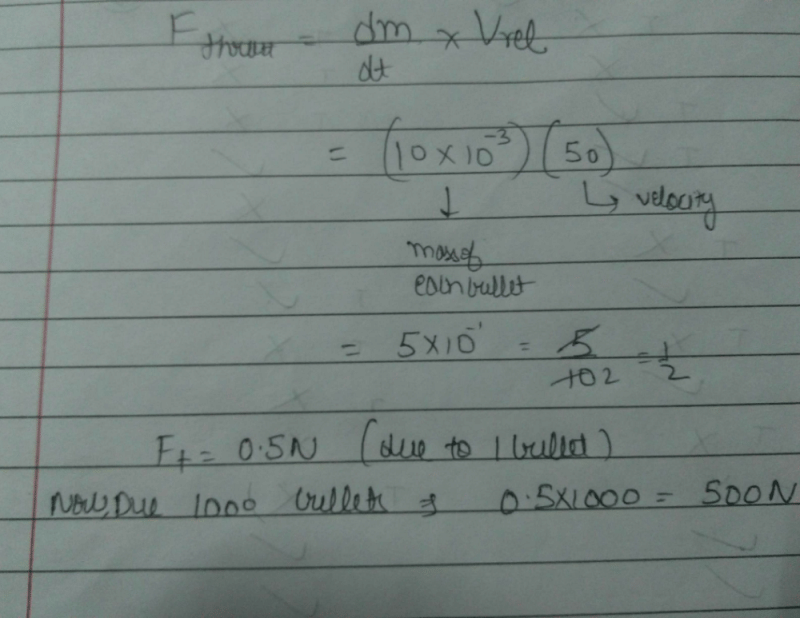 F thrust = dm/dt × Vrel
= (10×10⁻³) (50)
↓ ↳ velocity
mass of
each bullet
= 5×10⁻¹ = 5/10 2 = 1/2
Ft = 0.5N (due to 1 bullet)
Now, Due 1000 bullets ⇒ 0.5×1000 = 500N